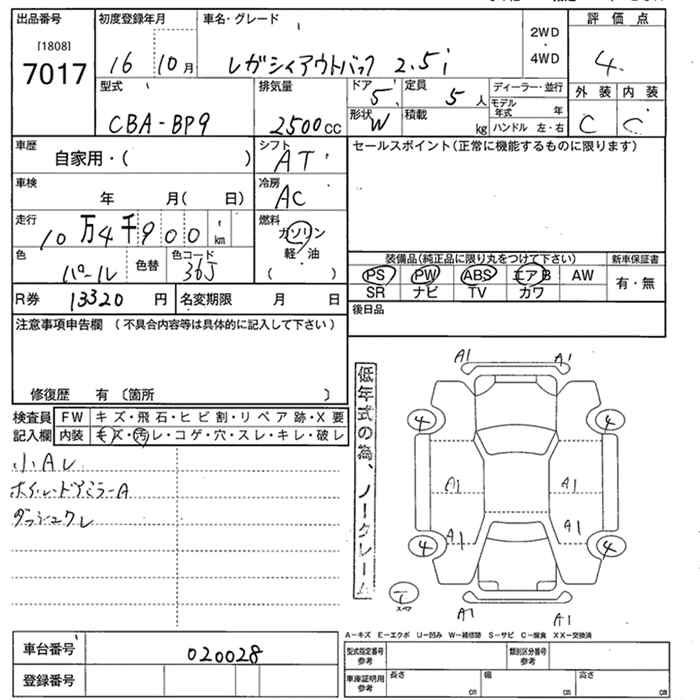 出品番号 初度登録年月 車名・グレード 2WD・4WD 評価点
[1808]
7017 16 10月 レガシィアウトバック 2.5i 4
型式 排気量 ドア 5 定員 5人 ディーラー・並行 外装 内装
モデル年式 年
CBA-BP9 2500cc 形状 W 積載 kg ハンドル 左・右 C C
車歴 シフト セールスポイント(正常に機能するものに限ります)
自家用・( ) AT
車検 冷房
年 月( 日) AC
走行 燃料
10万4千900 km ガソリン
軽・油
色 色替 色コード ( ) 装備品(純正品に限り丸をつけて下さい) 新車保証書
パール 36J PS PW ABS エアB AW 有・無
SR ナビ TV カワ
R券 13320円 名変期限 月 日 後日品
注意事項申告欄 (不具合内容等は具体的に記入して下さい)
修復歴 有 〔箇所 〕
検査員 FW キズ・飛石・ヒビ割・リペア跡・X要
記入欄 内装 キズ・汚レ・コゲ・穴・スレ・キレ・破レ
小Aレ
ホイルドアミラーA
ダッシュクレ
低年式の為、ノークレーム
A1 A1
4 4
A1 A1
A1 A1
4 4
T
スペア
A1 A1
A-キズ E-エクボ U-凹み W-補修跡 S-サビ C-腐食 XX-交換済
車台番号 020028 型式指定番号 参考 類別区分番号 参考
登録番号 車庫証明用 参考 長さ cm 幅 cm 高さ cm